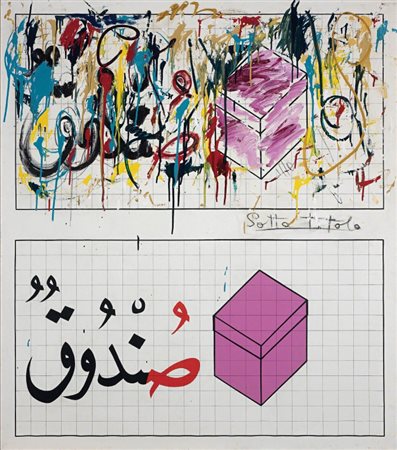 Sotto titolo
صُنْدُوقٌ